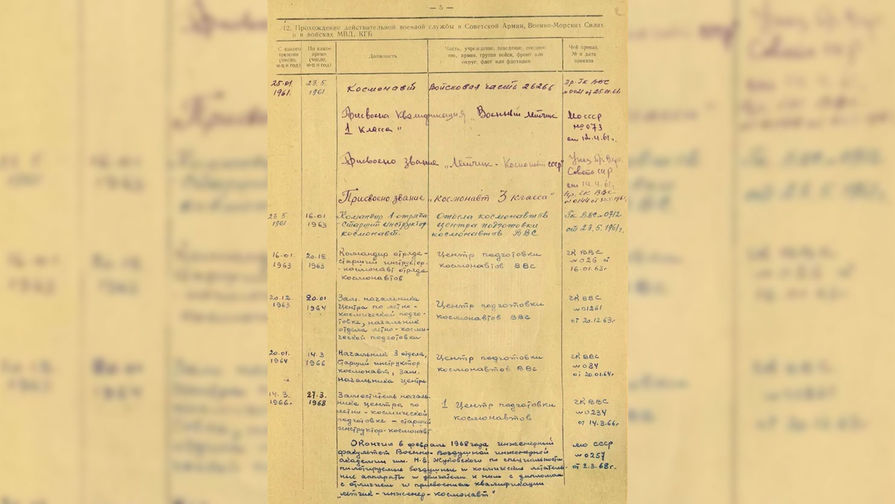 — 5 —
12. Прохождение действительной военной службы в Советской Армии, Военно-Морских Силах
и в войсках МВД, КГБ
С какого времени (число, м-ц и год)
По какое время (число, м-ц и год)
Должность
Часть, учреждение, заведение, соединение, армия, группа войск, фронт или округ, флот или флотилия
Чей приказ, № и дата приказа
25.01 1961 23.5 1961 Космонавт Войсковая часть 26266 Пр. Гк ВВС
Присвоена Квалификация „Военный лётчик
1 Класса“
МО СССР
№ 073
от 12.4.61г.
Присвоено звание „Лётчик-Космонавт СССР“
от 14.4.61.
Присвоено звание „Космонавт 3 класса“
23.5 1961 16.01 1963 Командир 1 отряда
старший инструктор
космонавт.
Отдела космонавтов
центра подготовки
космонавтов ВВС
Гк ВВС № 0712
от 23.5.1961г.
16.01 1963 20.12 1963 Командир отряда-
старший инструктор-
-космонавт отряда
космонавтов
Центр подготовки
космонавтов ВВС
ГК ВВС
№ 026 от
16.01.63г.
20.12 1963 20.01 1964 Зам. начальника
Центра по лётно-
космической подго-
товке, начальник
отдела лётно-косми-
ческой подготовки
Центр подготовки
космонавтов ВВС
ГК ВВС
№ 01261
от 20.12.63г.
20.01. 1964 14.3 1966 Начальник 3 отдела,
старший инструктор
космонавт, зам.
начальника центра
Центр подготовки
космонавтов ВВС
ГК ВВС
№ 084
от 20.01.64г.
14.3. 1966г. 27.3. 1968 Заместитель началь-
ника центра по
лётно-космической
подготовке – старший
инструктор-космонавт
1 Центр подготовки
космонавтов
ГК ВВС
№ 0234
от 14.3.66г.
Окончил в феврале 1968 года инженерный
факультет Военно-Воздушной инженерной
академии им. Н.Е. Жуковского по специальности
пилотируемые воздушные и космические летатель-
ные аппараты и двигатели к ним с дипломом
с отличием и присвоением квалификации
„лётчик-инженер-космонавт“
МО СССР
№ 0257
от 2.3.68г.